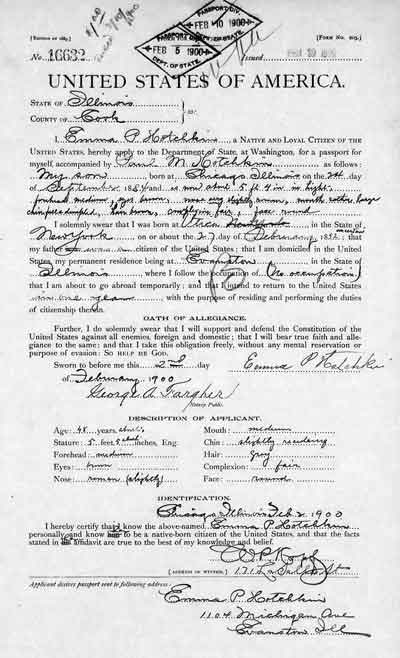 PASSPORT DIV.
FEB 10 1900
[Edition of 1889.]
FEB 5 1900
[Form No. 105.]
No. 16632
DEPT. OF STATE.
Issued
UNITED STATES OF AMERICA.
STATE OF Illinois
ss:
COUNTY OF Cook
I, Emma P. Hotchkin, a NATIVE AND LOYAL CITIZEN OF THE
UNITED STATES, hereby apply to the Department of State, at Washington, for a passport for
myself, accompanied by M. Hotchkin as follows:
My son born at Chicago Illinois on the day
of September, 1884 and is now about 5 ft 4 in in hight,
forehead medium, eyes brown, nose slightly roman, mouth rather large
chin dimpled, hair brown, complexion fair, face round
I solemnly swear that I was born at Utica, in the State of
New York on about the 27 day of February, 1852; that
my father citizen of the United States; that I am domiciled in the United
States, my permanent residence being at Evanston in the State of
Illinois, where I follow the occupation of (No occupation)
that I am about to go abroad temporarily; and that I intend to return to the United States
in one year, with the purpose of residing and performing the duties
of citizenship therein.
OATH OF ALLEGIANCE.
Further, I do solemnly swear that I will support and defend the Constitution of the
United States against all enemies, foreign and domestic; that I will bear true faith and alle-
giance to the same; and that I take this obligation freely, without any mental reservation or
purpose of evasion: SO HELP ME GOD.
Sworn to before me this 2nd day Emma P Hotchkin
of February 1900
George A. Fargher
Notary Public.
DESCRIPTION OF APPLICANT.
Age: 48 years. Mouth: medium
Stature: 5 feet, inches, Eng. Chin: slightly receding
Forehead: medium Hair: Gray
Eyes: brown Complexion: fair
Nose: roman (slightly) Face: round
IDENTIFICATION.
Chicago Illinois Feb 2 1900
I hereby certify that I know the above-named Emma P. Hotchkin
personally, and know her to be a native-born citizen of the United States, and that the facts
stated in her affidavit are true to the best of my knowledge and belief.
[ADDRESS OF WITNESS.] 171 La Salle St
Applicant desires passport sent to following address:
Emma P. Hotchkin
1104 Michigan Ave
Evanston Ill